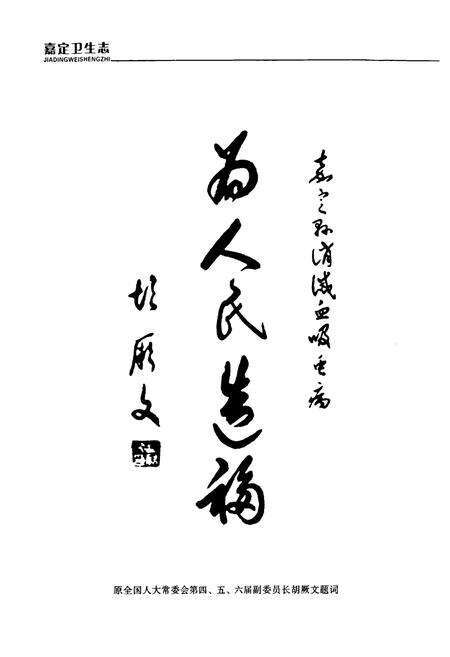 嘉定卫生志
JIADINGWEISHENGZHI
嘉定县消灭血吸虫病
为人民造福
胡厥文
原全国人大常委会第四、五、六届副委员长胡厥文题词